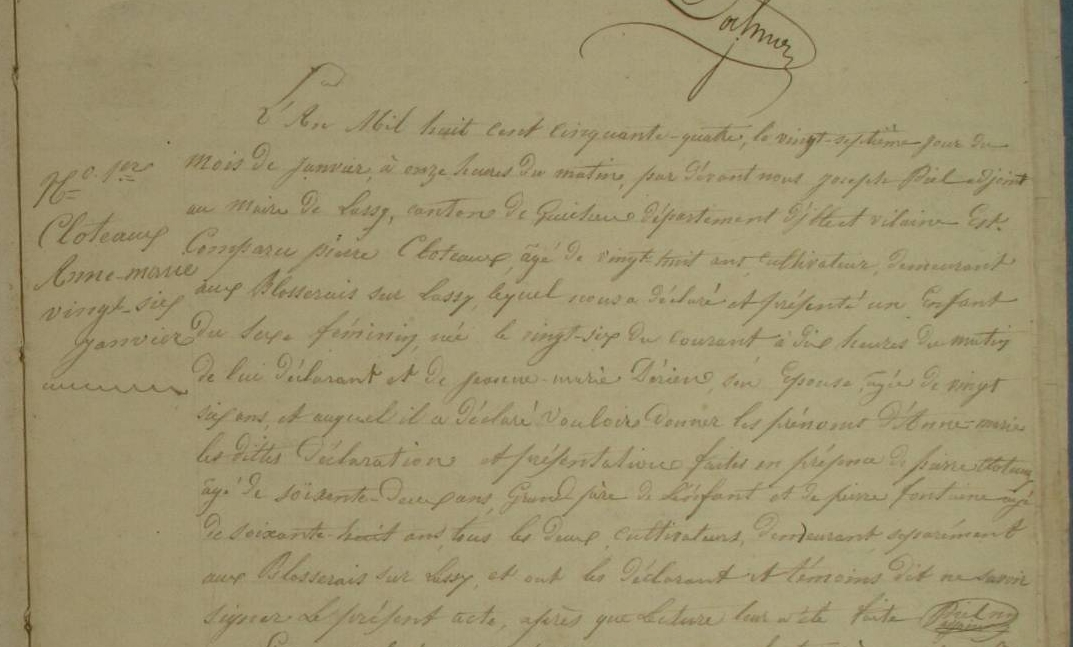 L'An Mil huit cent cinquante-quatre, le vingt-septième jour du
mois de janvier, à onze heures du matin, par devant nous joseph Piel adjoint
au maire de Lassy, canton de Guichen département d'ille et vilaine Est
Comparu pierre Cloteaux, âgé de vingt-huit ans, cultivateur, demeurant
aux Blosserais sur Lassy, lequel nous a déclaré et présenté un Enfant
du sexe féminin, née le vingt-six du courant à dix heures du matin
de lui déclarant et de jeanne-marie Dérien, son Epouse, âgée de vingt
six ans, et auquel il a déclaré vouloir donner les prénoms d'Anne-marie
les dittes déclaration et présentation faites en présence de pierre Cloteaux
âgé de soixante-deux ans, Grand père de l'enfant et de pierre fontaine âgé
de soixante-huit ans, tous les deux, cultivateurs, demeurant séparément
aux Blosserais sur Lassy, et ont les déclarant et témoins dit ne savoir
signer Le présent acte, après que Lecture leur a été faite
N° 1er
Cloteaux
Anne-marie
vingt-six
janvier